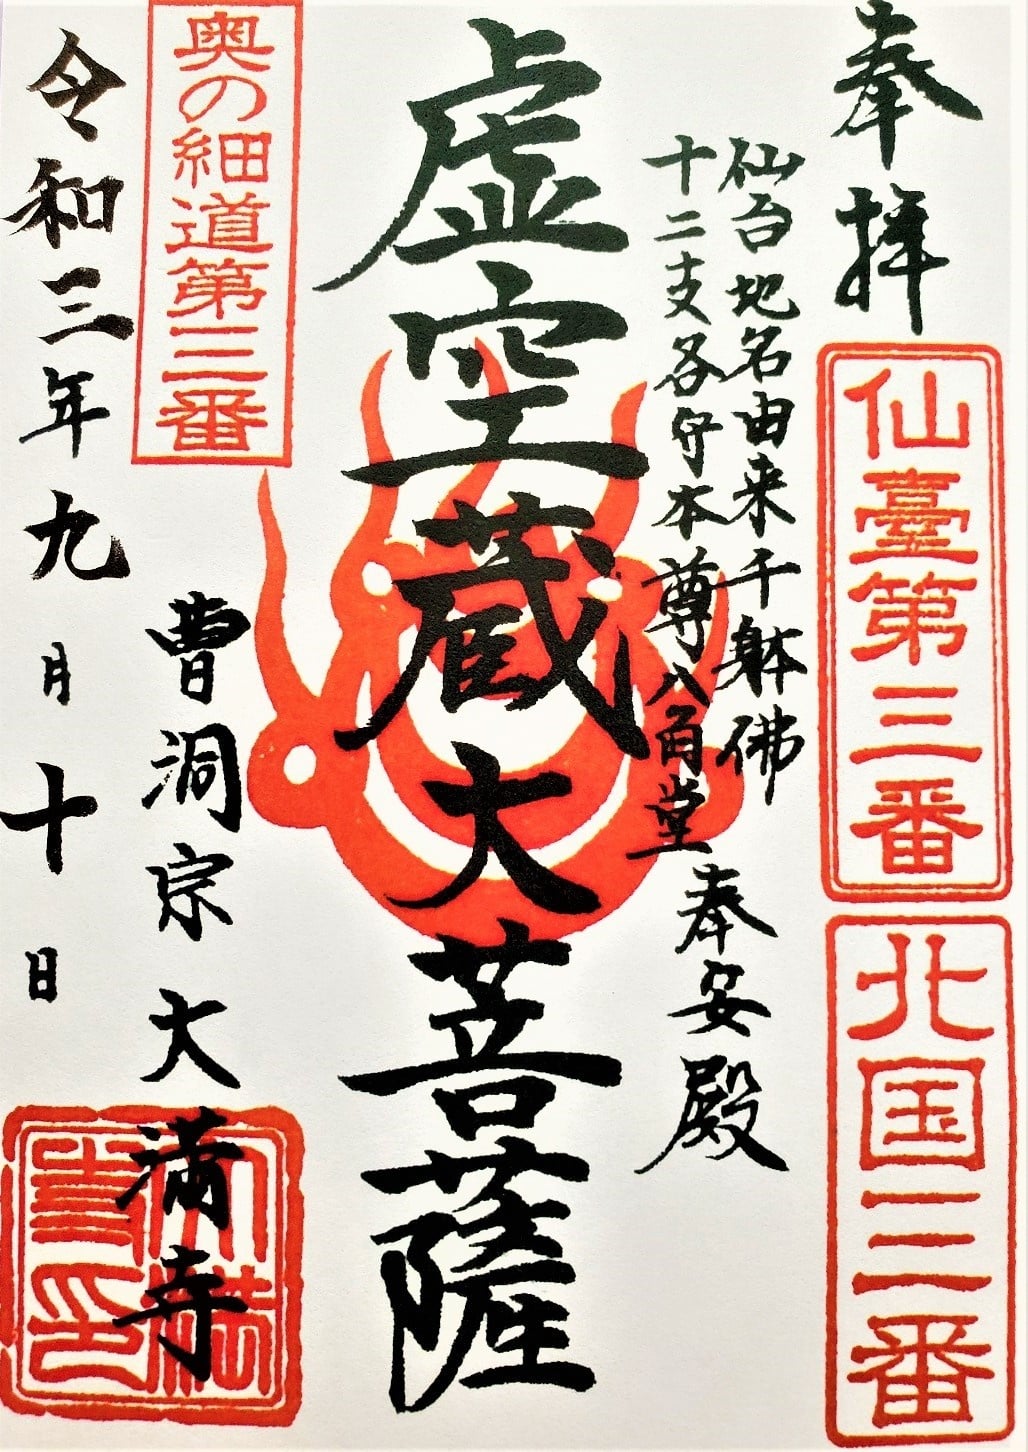 奉拝
仙臺第三番
北国三番
仙台地名由来千躰佛
十二支各守本尊八角堂
奉安殿
虚空蔵大菩薩
奥の細道第三番
曹洞宗大満寺
令和三年九月十日